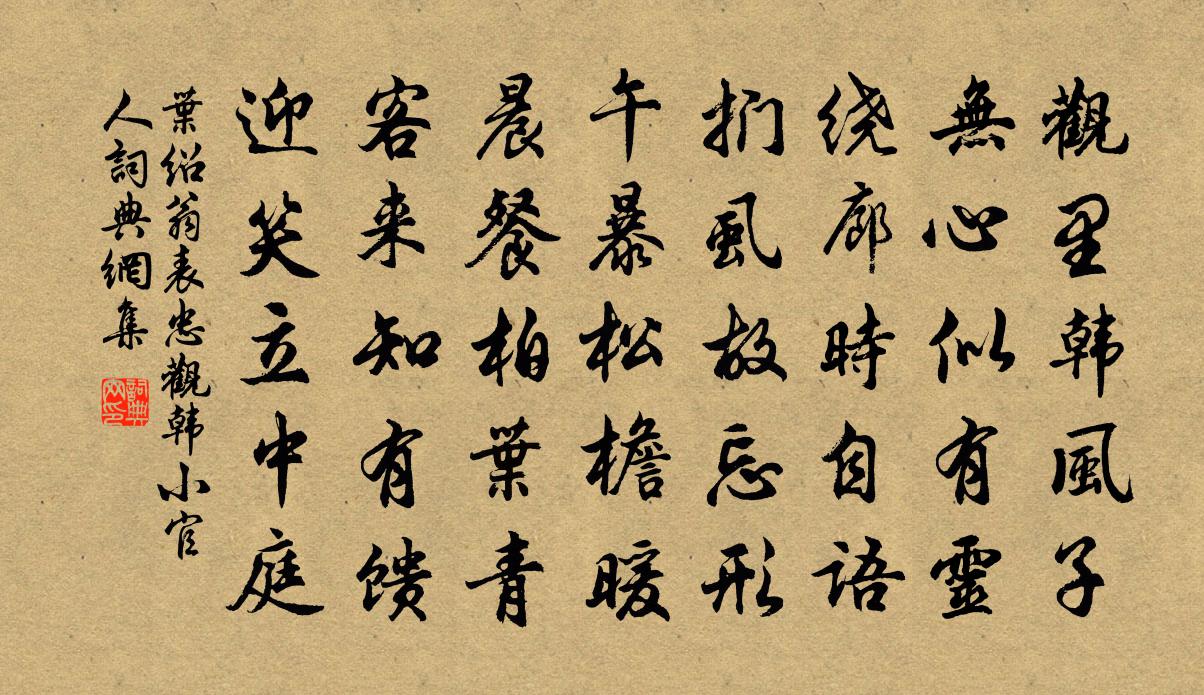 觀里韩風子
無心似有靈
绕廊時自语
捫虱故忘形
午暴松檐暖
晨餐柏葉青
客来知有馈
迎笑立中庭
葉绍翁表忠觀韩小官
人詞典網集
詞典网印